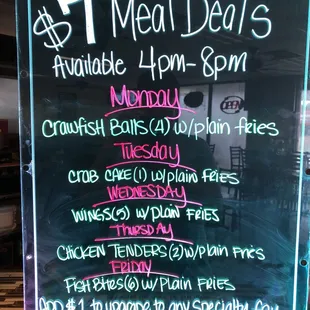 $7 Meal Deals
Available 4pm-8pm
Monday
OPEN
Crawfish Balls (4) w/plain fries
Tuesday
CRAB CAKE (1) w/plain FRIES
WEDNESDAY
WINGS (5) w/ plain FRIES
THURSDAY
CHICKEN TENDERS (2) w/plain FRIES
FRIDAY
FISH BITES (6) w/ Plain FRIES
ADD $1 to upgrade to any Specialty